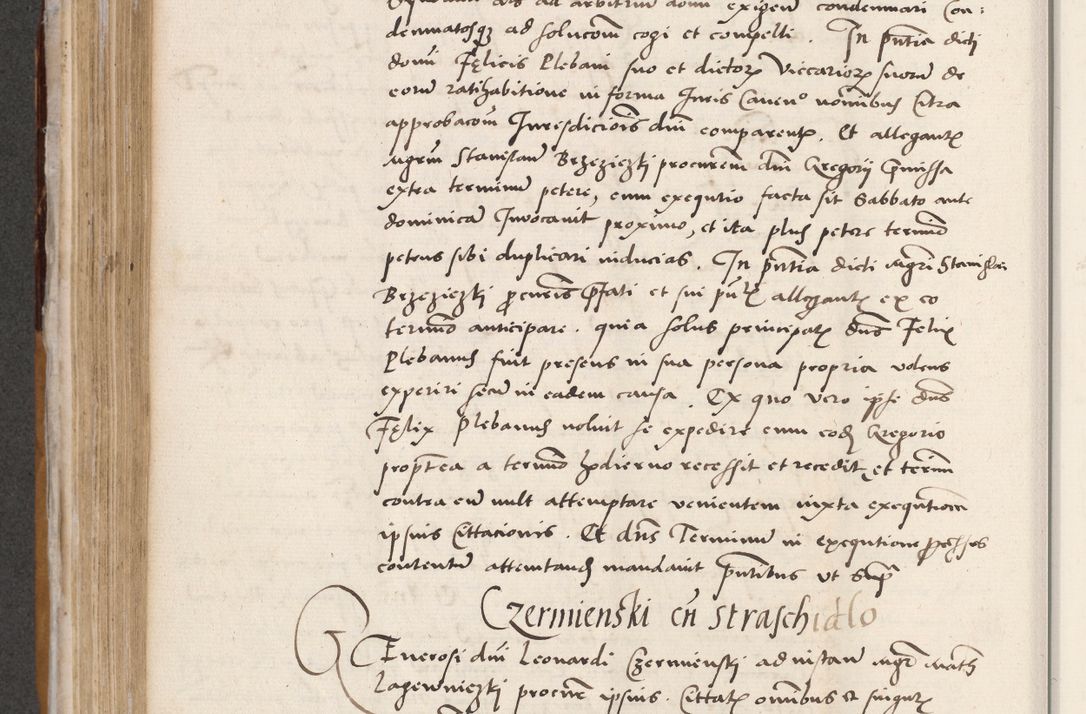 ad arbitrium domi exigen condemnari Con:
demnatosqz ad solucom cogi et compelli. In pntia dicti
domi Felicis Plebani suo et dictorz Viccariorz suorum de
eorum ratihabitione in forma Juris Caven nomibus Citra
approbacom Juresdicionis dni comparentz. Et allegantz
Mgrum Stanislaum Brzeziczki procurem dni Gregorii
extea terminum petere, cum exequtio facta sit Sabbato ante
dominicam Invocavit proximo, et ita plus petere termino
petens sibi duplicari inducias. In pntia dicti Mgri Stanislai
Brzeziczki procuris pfati et sui allegantz ex eo
termino anticipare. quia solus principalz dns Felix
Plebanus fuit presens in sua persona propria volens
experiri secum in eadem causa. Ex quo vero ipse dns
Felix Plebanus noluit se expedire cum eodem Gregorio
proptea a termino hodierno recessit et recedit et terim
contra eum vult attemptare venientem iuxta exequtionem
ipsius Cittacionis. Et dns Terminum in exequtione
contentum attentandum mandavit ut Supra
Czermienski cn Straschidlo
Generosi dni Leonardi Czermienski ad instan Mgri Math
Lagewniczki procure ipsius. Cittatz omnibus et singulz